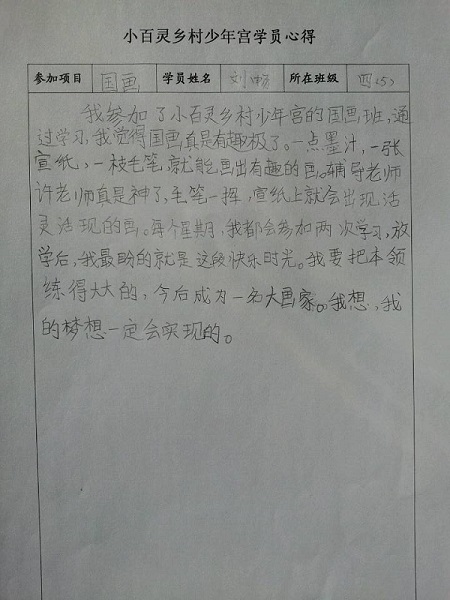 小百灵乡村少年宫学员心得
参加项目 国画 学员姓名 刘畅 所在班级 四(5)
我参加了小百灵乡村少年宫的国画班,通
过学习,我觉得国画真是有趣极了。一点墨汁,一张
宣纸,一枝毛笔,就能画出有趣的画。辅导老师
许老师真是神了,毛笔一挥,宣纸上就会出现活
灵活现的画。每个星期,我都会参加两次学习,放
学后,我最盼的就是这段快乐时光。我要把本领
练得大大的,今后成为一名大画家。我想,我
的梦想一定会实现的。